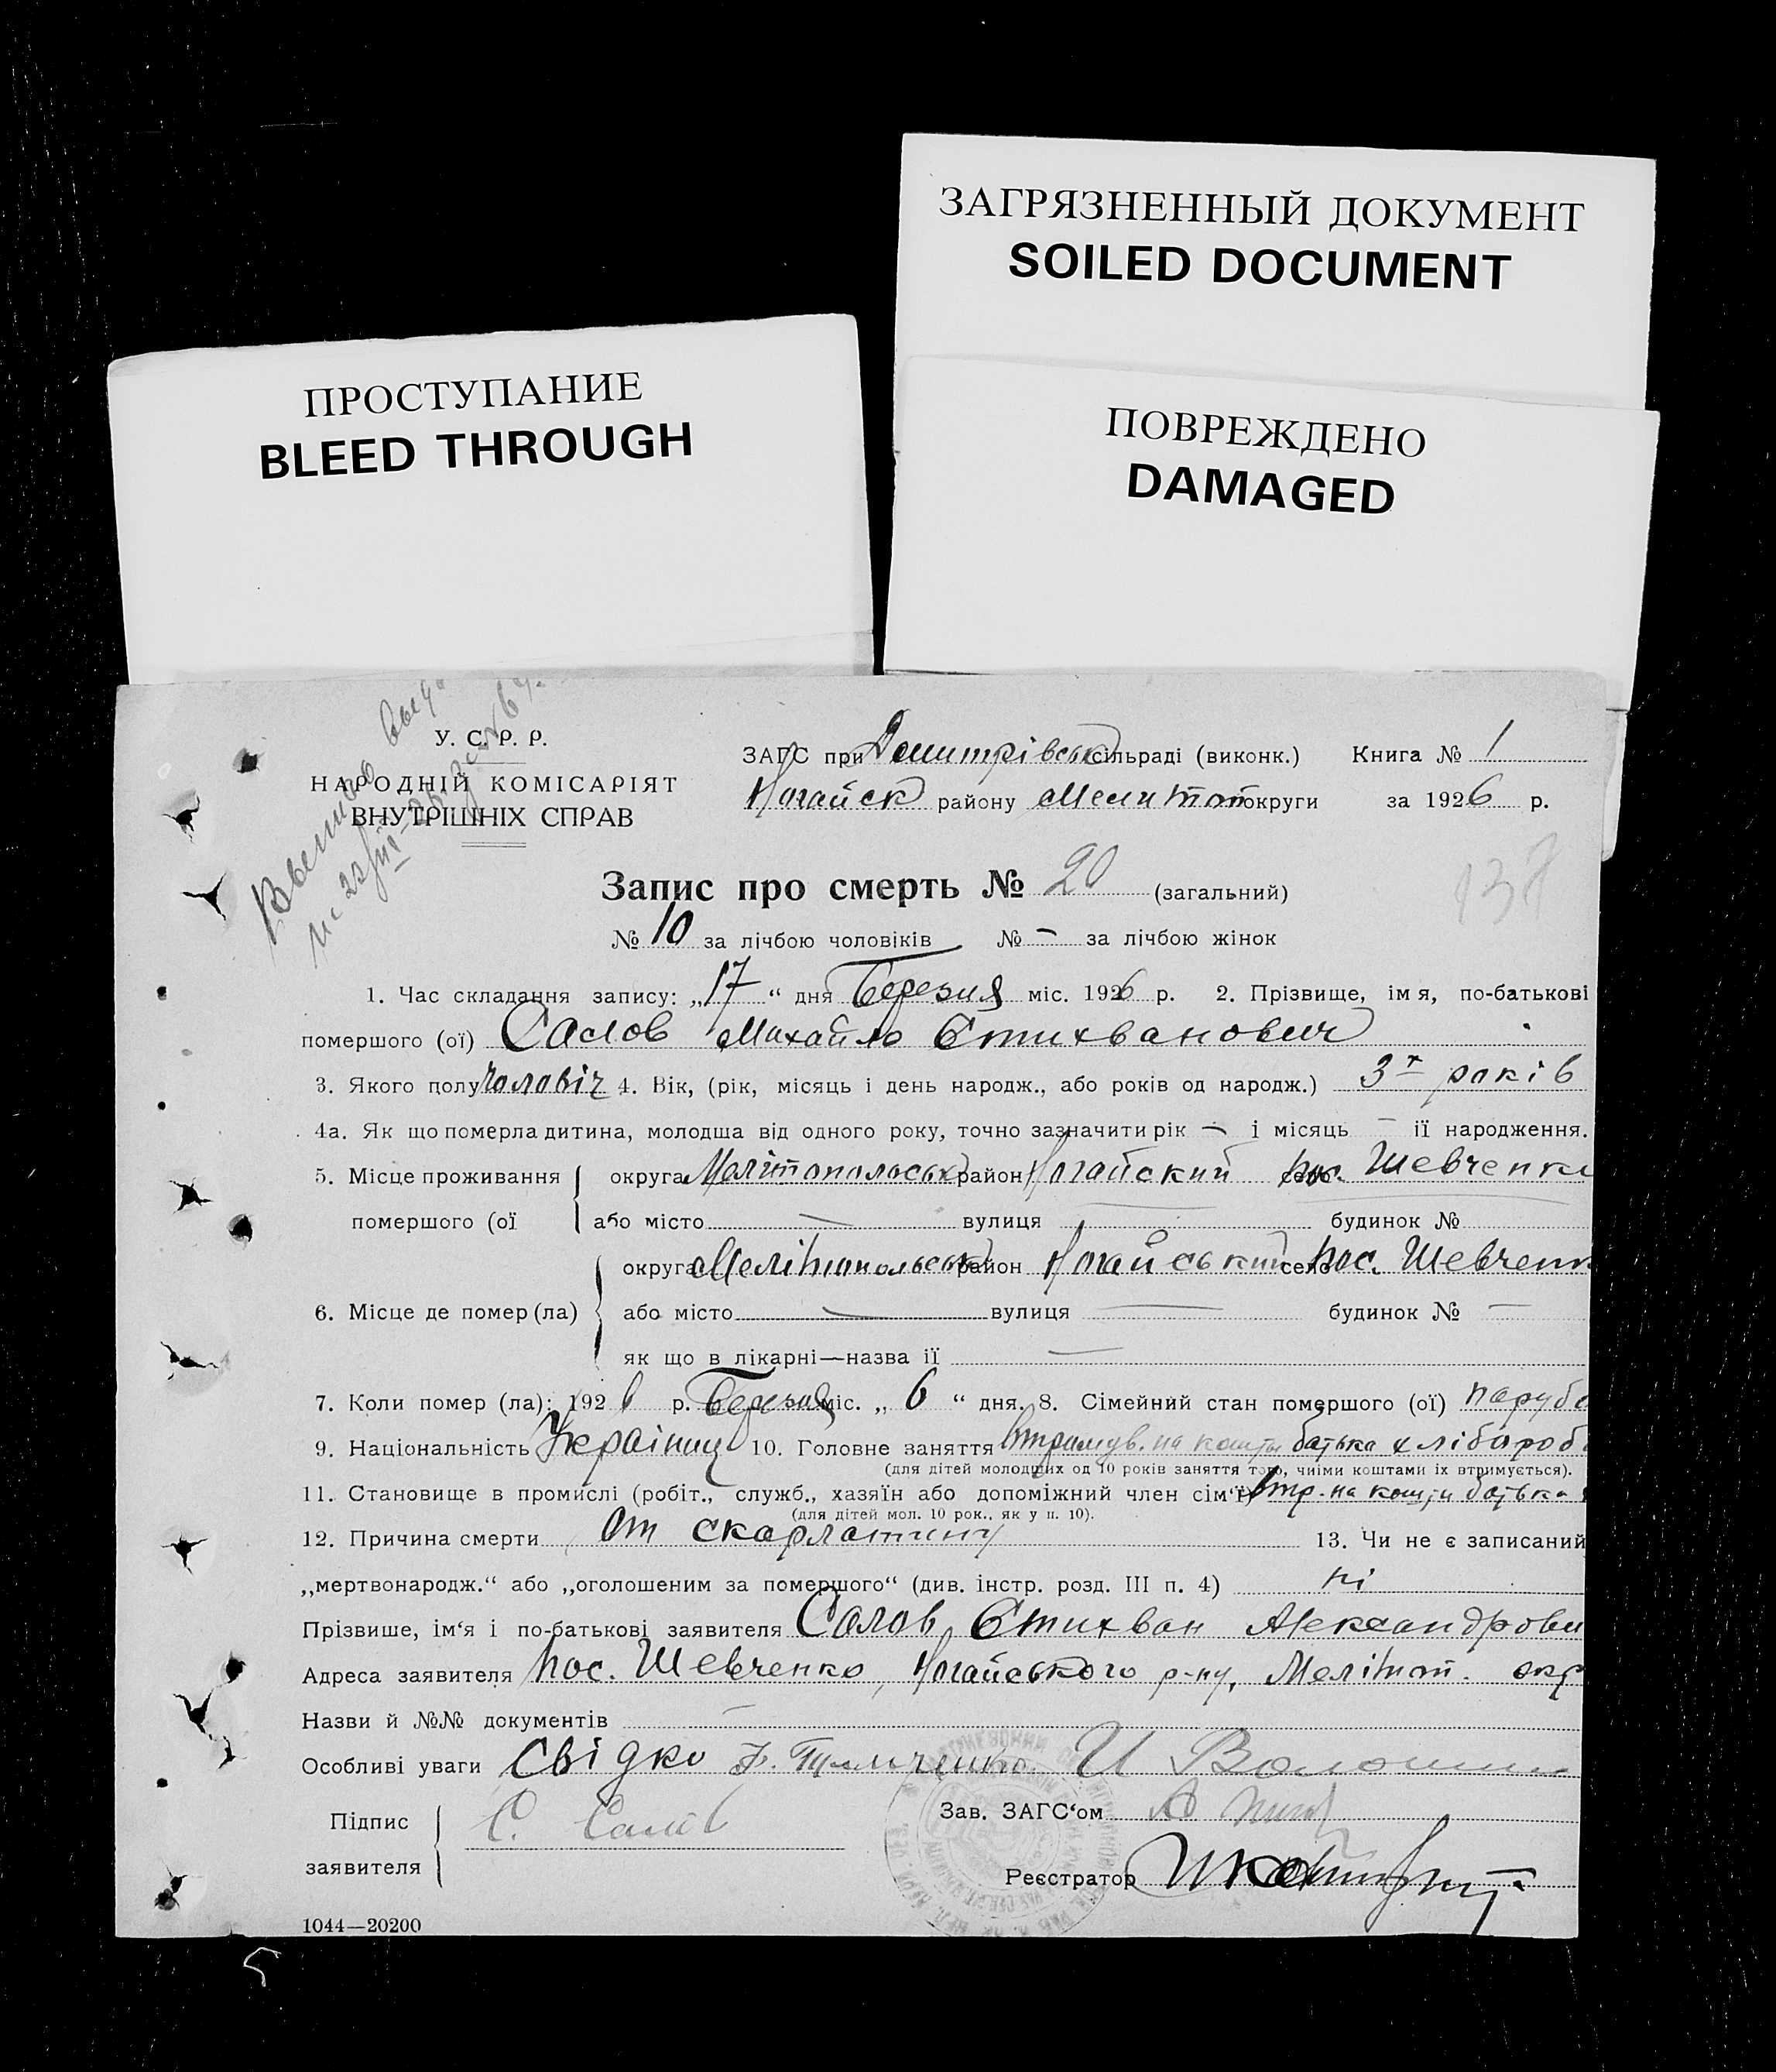 ЗАГРЯЗНЕННЫЙ ДОКУМЕНТ
SOILED DOCUMENT
ПРОСТУПАНИЕ
BLEED THROUGH
ПОВРЕЖДЕНО
DAMAGED
У. С. Р. Р.
НАРОДНІЙ КОМІСАРІЯТ
ВНУТРІШНІХ СПРАВ
ЗАГС при Дмитрівськ сільраді (виконк.) Книга № 1
Ногайск району Мелитоп округи за 1926 р.
Запис про смерть № 20 (загальний)
137
№ 10 за лічбою чоловіків № — за лічбою жінок
1. Час складання запису: „17“ дня Березня міс. 1926 р. 2. Прізвище, імя, по-батькові
помершого (ої) Салов Михайло Стихванович
3. Якого полу чоловіч 4. Вік, (рік, місяць і день народж., або років од народж.) 3х років
4а. Як що померла дитина, молодша від одного року, точно зазначити рік — і місяць — її народження.
5. Місце проживання округа Мелітопольськ район Ногайский пос. Шевченко
помершого (ої або місто — вулиця будинок №
округа Мелітопольськ район Ногайський село пос. Шевченк
6. Місце де помер (ла) або місто — вулиця — будинок № —
як що в лікарні—назва її —
7. Коли помер (ла): 1926 р. Березня міс. „ 6 “ дня. 8. Сімейний стан помершого (ої) парубо
9. Національність Украінец 10. Головне заняття втримув. на кошти батька хлібороб
(для дітей молодших од 10 років заняття того, чиїми коштами їх втримується).
11. Становище в промислі (робіт., служб., хазяїн або допоміжний член сім'ї) втр. на кошти батька
(для дітей мол. 10 рок., як у п. 10).
12. Причина смерти От скарлатини 13. Чи не є записаний
„мертвонародж.“ або „оголошеним за помершого“ (див. інстр. розд. III п. 4) ні
Прізвише, ім'я і по-батькові заявителя Салов Стихван Александрови
Адреса заявителя пос. Шевченко, Ногайського р-ну, Меліт. окр
Назви й №№ документів —
Особливі уваги Свідки И Волошин
Підпис С. Салов Зав. ЗАГС'ом
заявителя Реєстратор
1044—20200